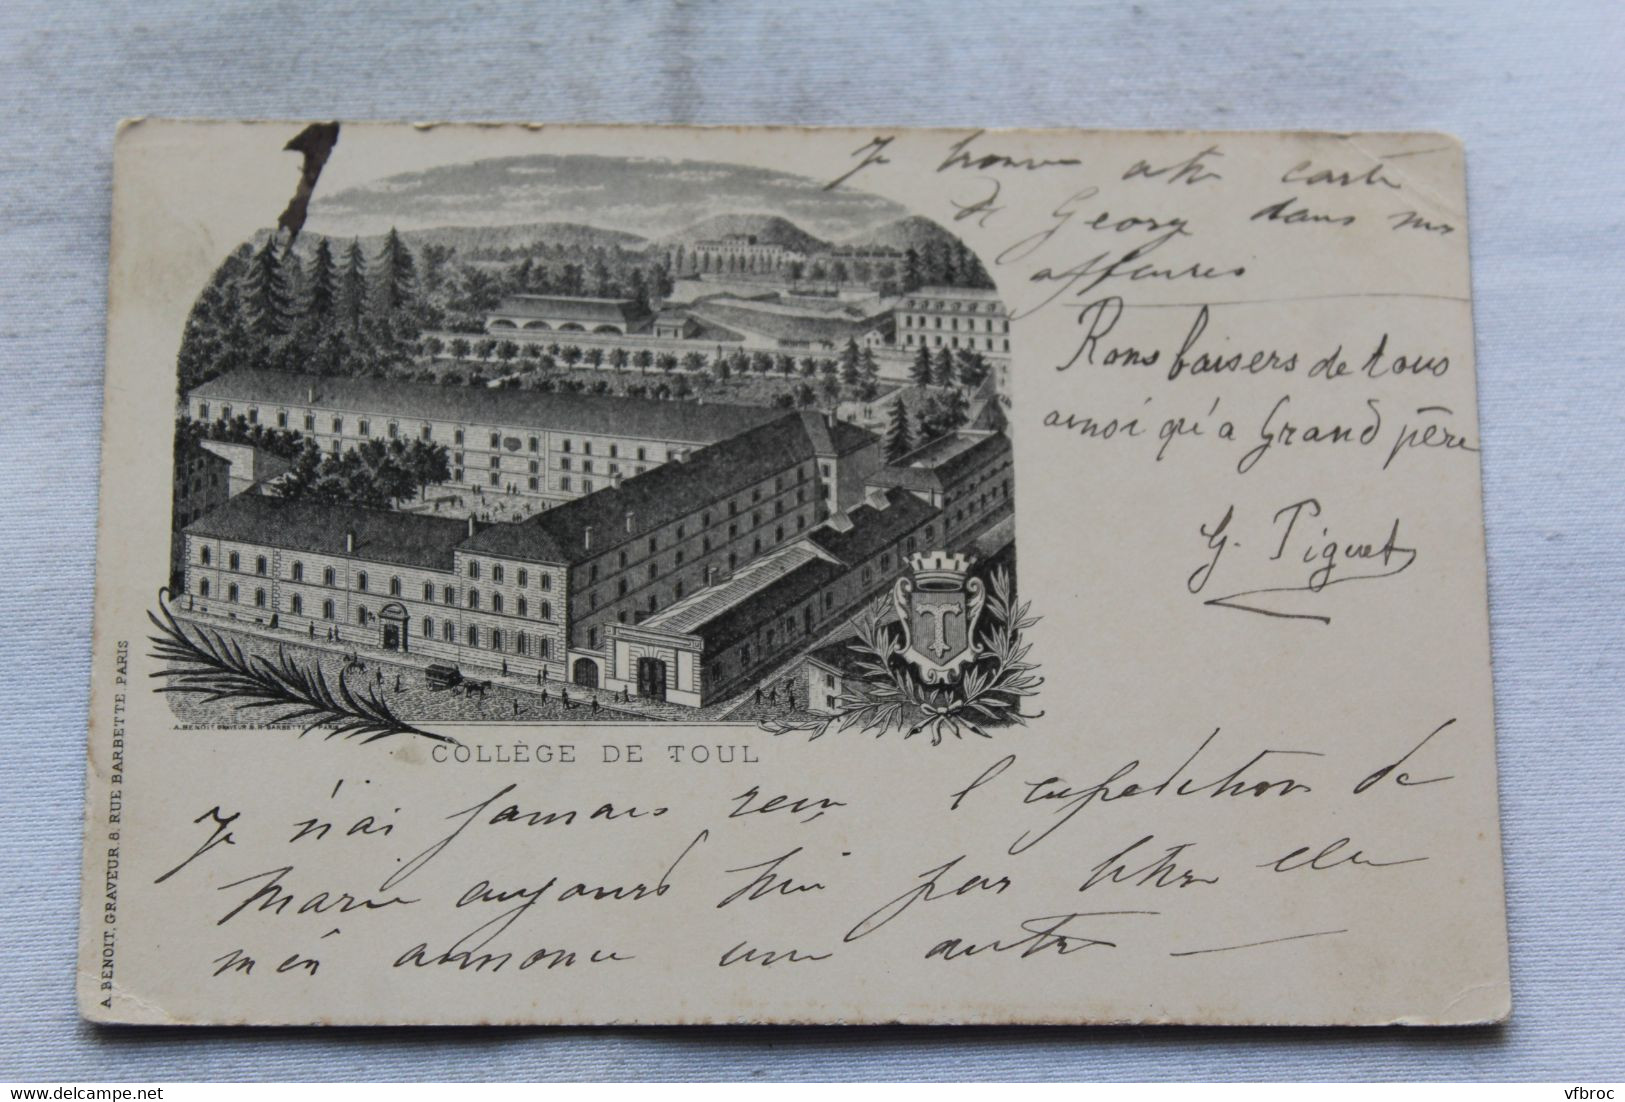 Je trouve cette carte
de Georg dans mes
affaires
Bons baisers de tous
a moi qu'a Grand père
G. Piguet
A. BENOIT, GRAVEUR. 8. RUE BARBETTE. PARIS
A. BENOIT GRAVEUR. 8. R. BARBETTE PARIS
COLLÈGE DE TOUL
Je n'ai jamais reçu l'expédition de
Marie aujourd'hui par lettre elle
m'en annonce une autre —
vfbroc
delcampe.net